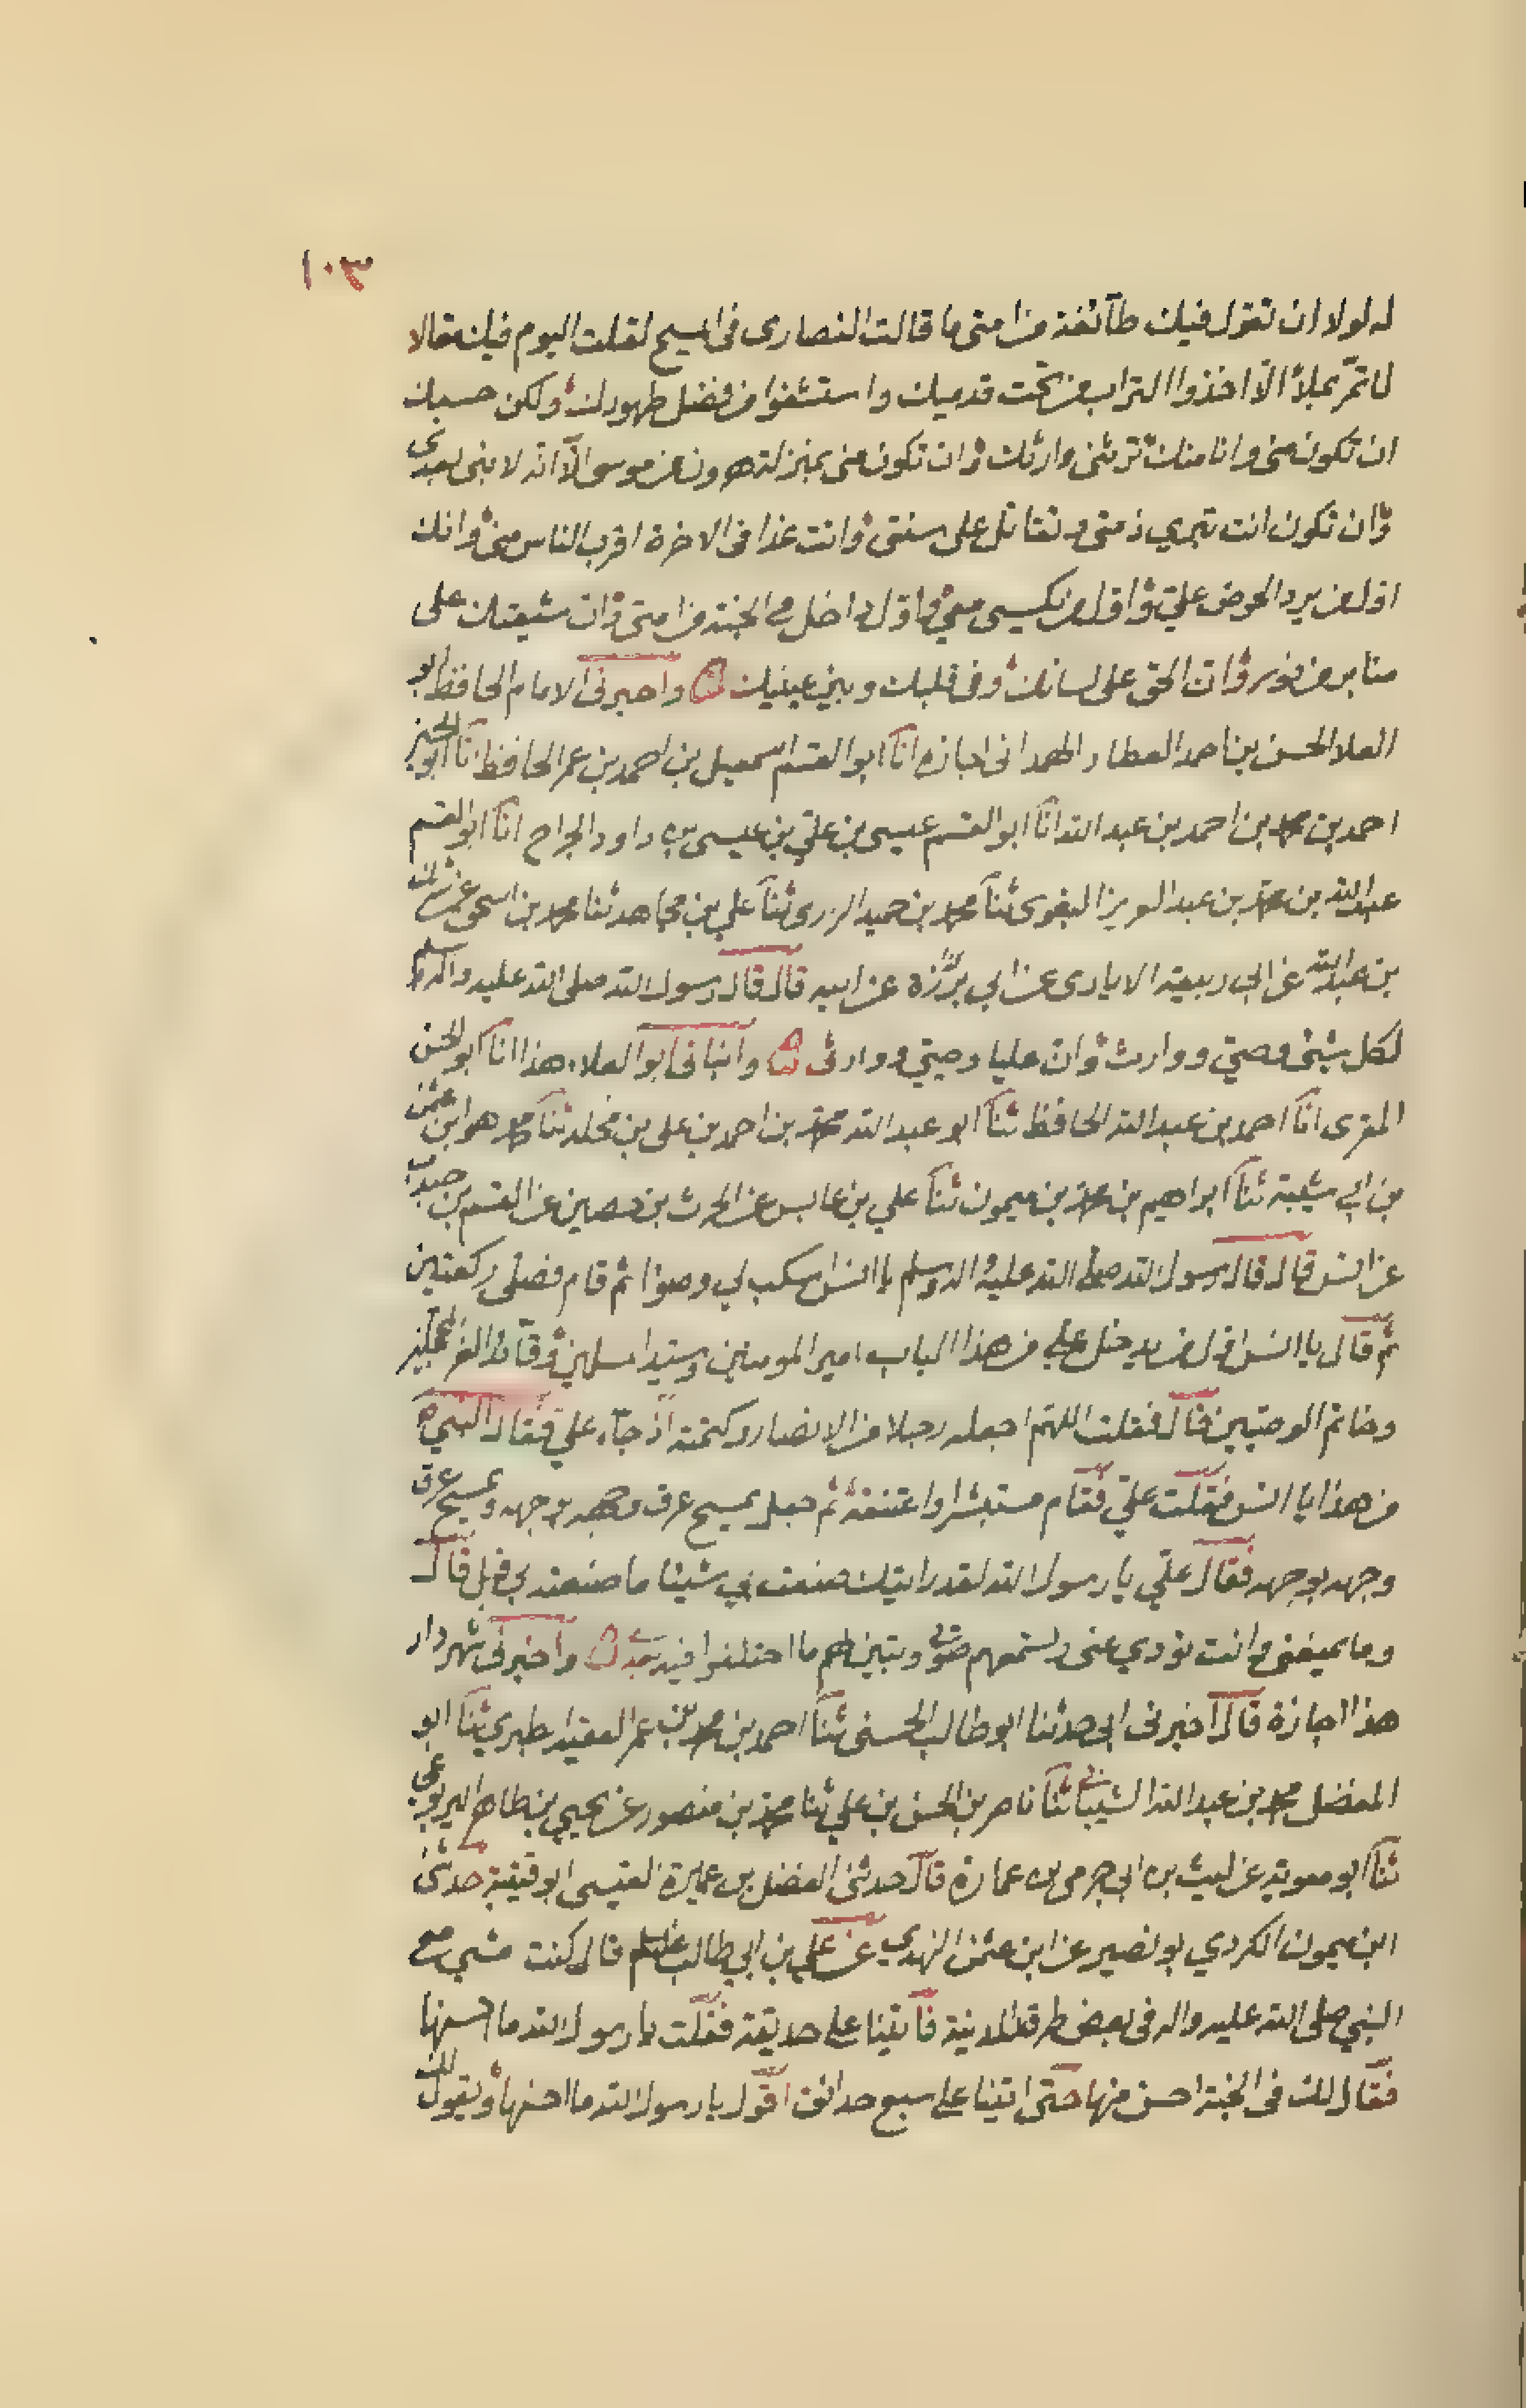 ١٠٣
له لولا ان تقول فيك طآئفة من امتى ما قالت النصارى فى المسيح لقلت اليوم فيك مقالا
لا تمرّ بملأ الّا اخذوا التراب من تحت قدميك واستشفوا من فضل طهورك ولكن حسبك
ان تكون منى وانا منك ترثنى وارثك وان تكون منى بمنزلة هرون من موسى الّا انه لا بنى بعدى
وان تكون انت تبرى ذمتى وتقاتل على سنتى وانت غدا فى الاخرة اقرب الناس منى وانك
اول من يرد الحوض علىّ واول من يكسى معى واول داخل فى الجنة من امتى وان شيعتك على
منابر من نور وان الحق على لسانك وفى قلبك وبين عينيك واخبرنى الامام الحافظ ابو
العلا الحسن بن احمد العطار الهمدانى اجازه انا ابو القسم اسمعيل بن احمد بن عمر الحافظ انا ابو
احمد بن محمد بن احمد بن عبد الله انا ابو القسم عيسى بن علي بن عيسى بن داود الجراح انا ابو القسم
عبد الله بن محمد بن عبد العزيز البغوى ثنا محمد بن حميد الرزى ثنا علي بن مجاهد ثنا محمد بن اسحق عن شريك
بن عبد الله عن ابى ربيعة الايادى عن ابي برزة عن ابيه قال قال رسول الله صلى الله عليه واله وسلم
لكل بنى وصىّ ووارث وان عليا وصيى ووارثى وانبانى ابو العلاء هذا انا ابو الحسن
المقرى انا احمد بن عبد الله الحافظ ثنا ابو عبد الله محمد بن احمد بن على بن مخلد ثنا محمد هو ابن عثمن
بن ابى شيبة ثنا ابراهيم بن محمد بن ميمون ثنا علي بن عابس عن الحرث بن حصين عن القسم بن جندب
عن انس قال قال رسول الله صلى الله عليه واله وسلم يا انس اسكب لي وضوا ثم قام فصلى ركعتين
ثم قال يا انس اول من يدخل على من هذا الباب امير المومنين وسيد المسلمين وقآئد الغر المحجلين
وخاتم الوصيين قال فقلت اللهم اجعله رجلا من الانصار وكتمته اذ جآء علي فقال النبي ص
من هذا يا انس فقلت علىّ فقام مستبشرا واعتنقه ثم جعل يمسح عرق وجهه بوجهه ويمسح عرق
وجهه بوجهه فقال علىّ يا رسول الله لقد رايتك صنعت بي شيئا ما صنعته بى قبل قال
وما يمنعنى وانت تودي عنى وتسمعهم صوتى وتبين لهم ما اختلفوا فيه بعدى واخبرنى شهردار
هذا اجازة قال اخبرنى ابى حدثنا ابو طالب الحسنى ثنا احمد بن محمد بن عمر الفقيه الطبرى ثنا ابو
المفضل محمد بن عبد الله الشيبانى ثنا ناصر بن الحسن بن علي ثنا محمد بن منصور عن يحيى بن طاهر اليربوعى
ثنا ابو معوية عن ليث بن ابى جرمى بن عمارة قال حدثنى الفضل بن عميرة القيسى ابو قتيبة حدثنى
ابن ميمون الكردي بو نصير عن ابن عثمن النهدي عن علي بن ابي طالب قال كنت مشى مع
النبي صلى الله عليه واله فى بعض طرق المدينة فاتينا على حديقة فقلت يا رسول الله ما احسنها
فقال لك فى الجنة احسن منها حتى اتينا على سبع حدائق اقول يا رسول الله ما احسنها ويقول لك